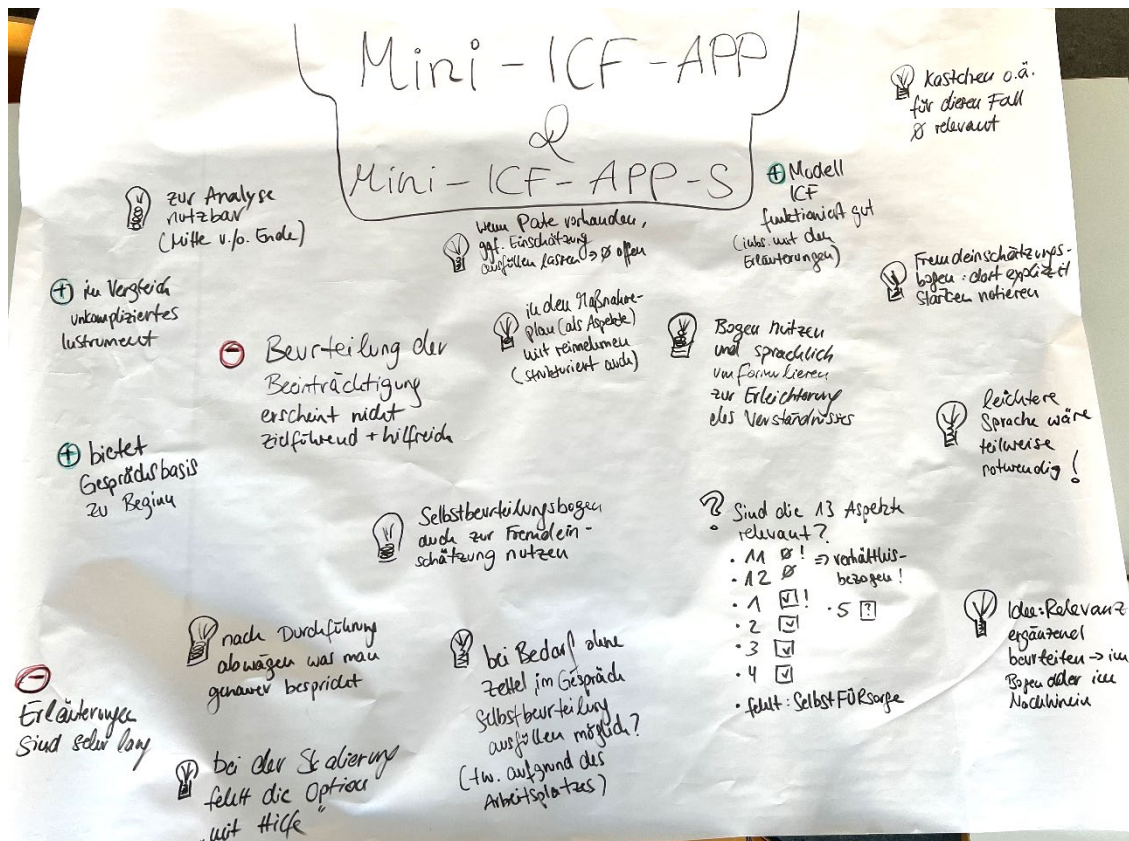 Mini-ICF-APP
&
Mini-ICF-APP-S
Kästchen o.ä.
für diesen Fall
Ø relevant
zur Analyse
nutzbar
(Mitte u./o. Ende)
wenn Pate vorhanden,
ggf. Einschätzung
ausfüllen lassen => Ø offen
+ Modell
ICF
funktioniert gut
(insb. mit den
Erläuterungen)
Fremdeinschätzungs-
bogen: dort explizit
Stärken notieren
+ im Vergleich
unkompliziertes
Instrument
- Beurteilung der
Beeinträchtigung
erscheint nicht
zielführend + hilfreich
in den Maßnahme-
plan (als Aspekte)
mit reinnehmen
(strukturiert auch)
Bogen nutzen
und sprachlich
umformulieren
zur Erleichterung
des Verständnisses
leichtere
Sprache wäre
teilweise
notwendig!
+ bietet
Gesprächsbasis
zu Beginn
Selbstbeurteilungsbogen
auch zur Fremdein-
schätzung nutzen
? Sind die 13 Aspekte
relevant?
· 11 Ø! => verhältnis-
· 12 Ø bezogen!
· 1 ☑! · 5 ?
· 2 ☑
· 3 ☑
· 4 ☑
· fehlt: SelbstFÜRsorge
Idee: Relevanz
ergänzend
beurteilen -> im
Bogen oder im
Nachhinein
nach Durchführung
abwägen was man
genauer bespricht
bei Bedarf ohne
Zettel im Gespräch
Selbstbeurteilung
ausfüllen möglich?
(tw. aufgrund des
Arbeitsplatzes)
- Erläuterungen
sind sehr lang
bei der Skalierung
fehlt die Option
"mit Hilfe"